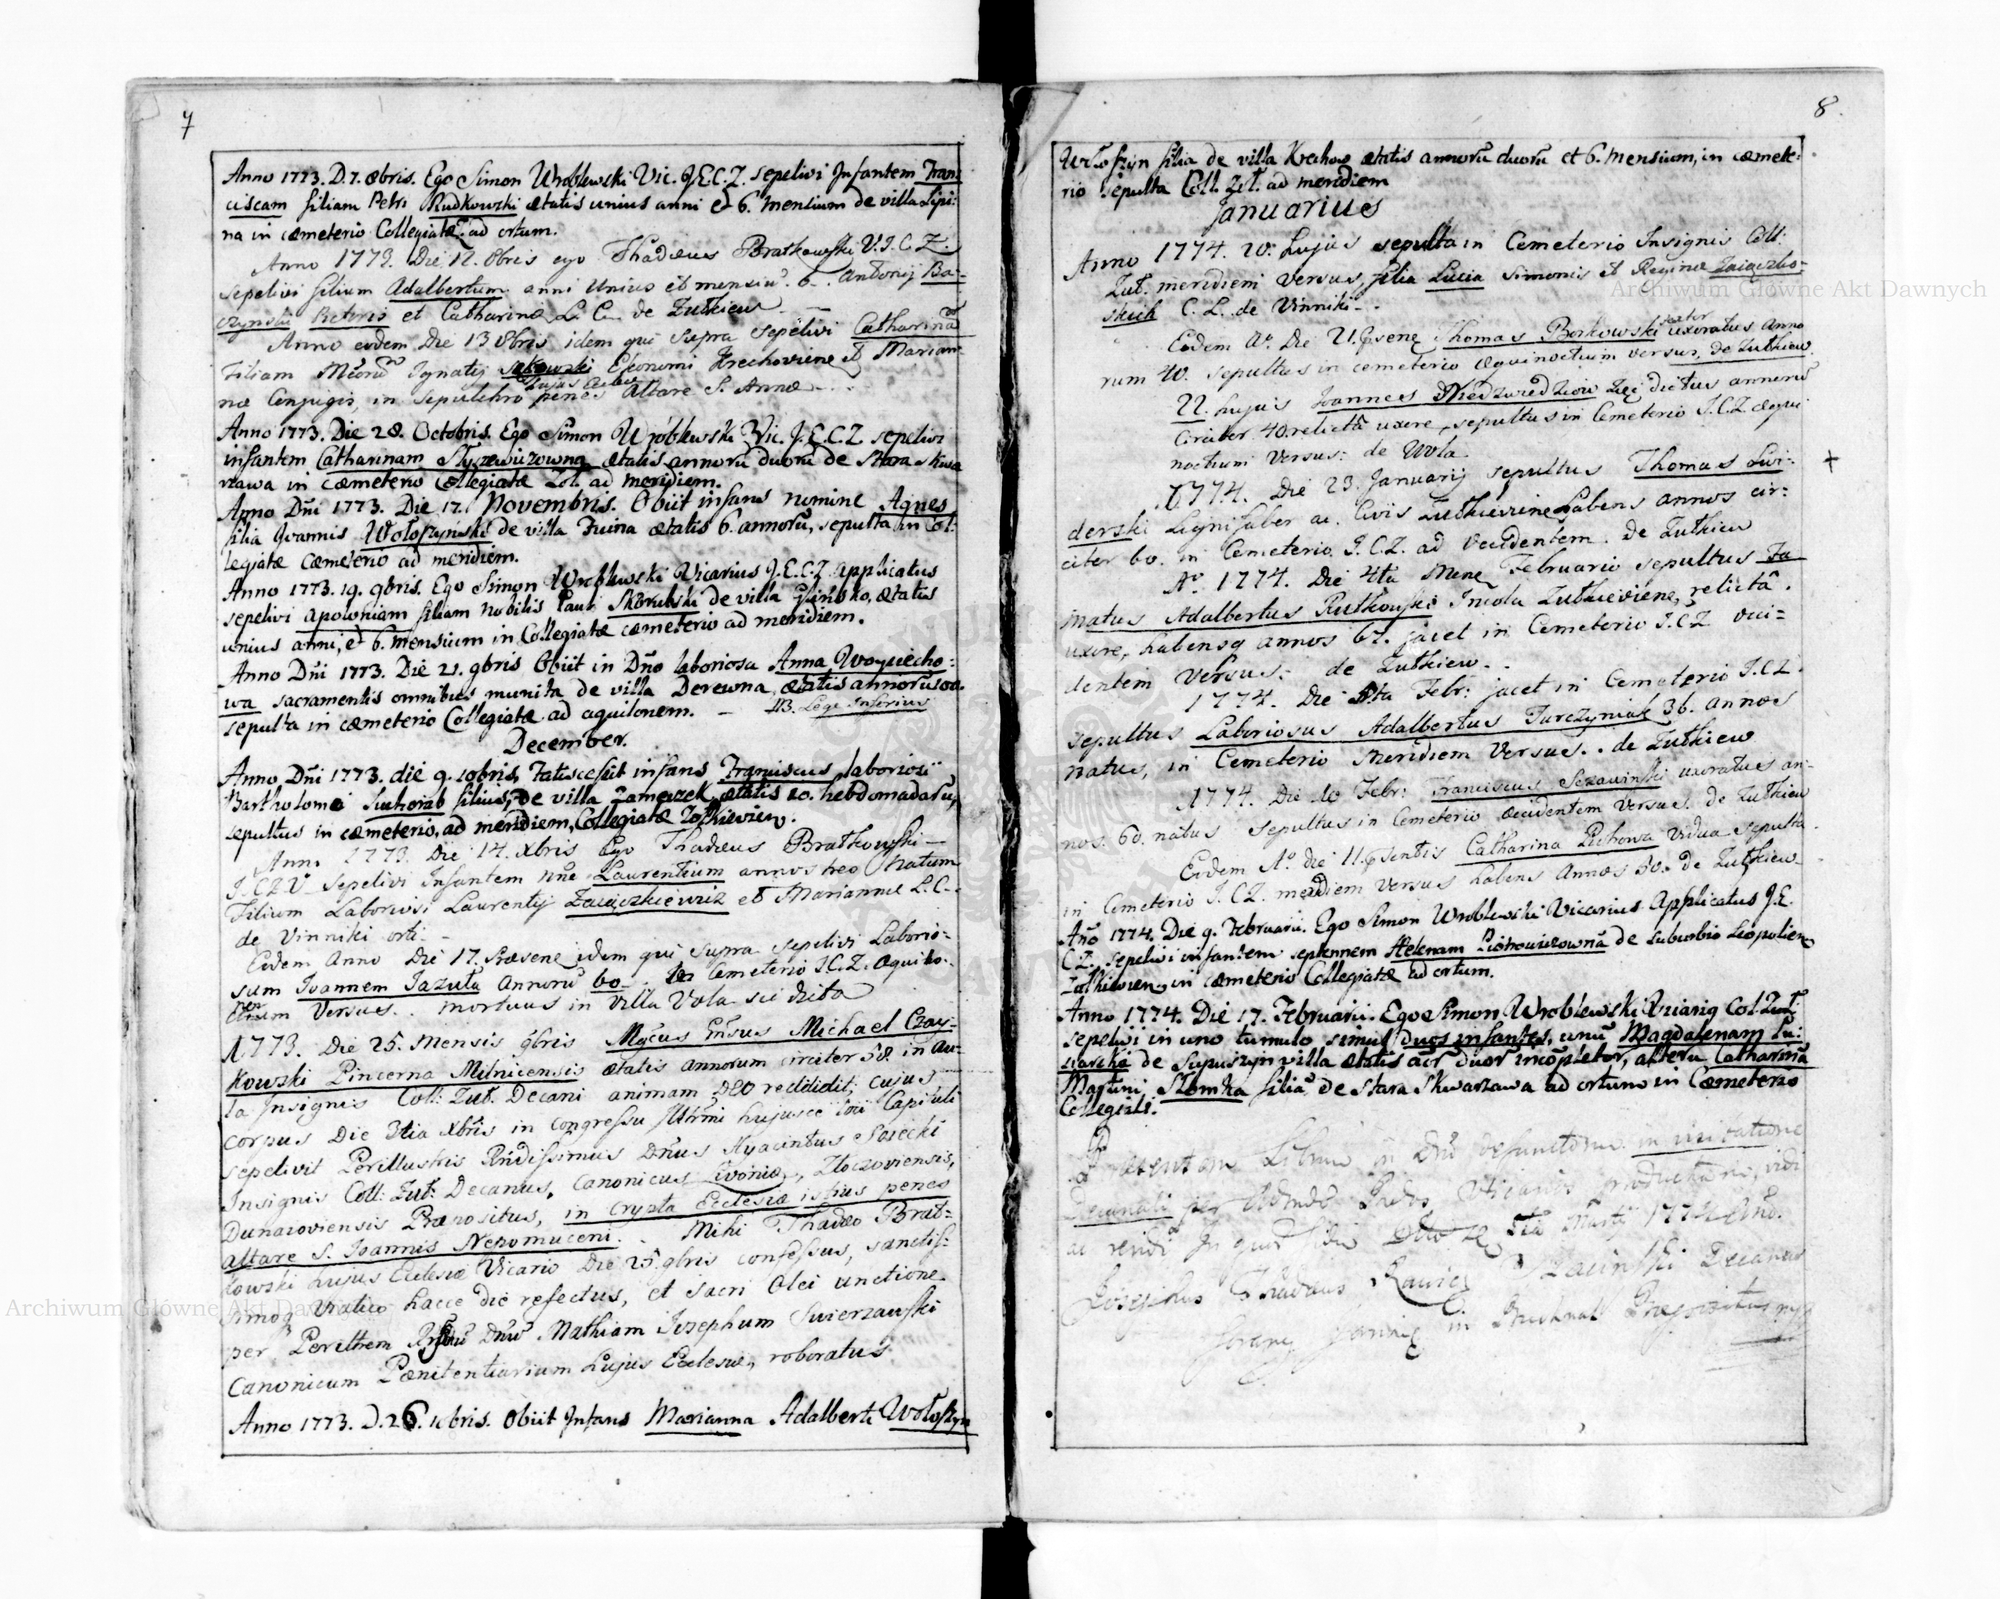 7
Anno 1773. D. 7. 8bris. Ego Simon Wroblewski Vic. J.E.C.Z. sepelivi Infantem Fran-
ciscam filiam Petri Rudkowski ætatis unius anni et 6. mensium de villa Lipi:
na in cæmeterio Collegiatæ ad ortum.
Anno 1773. Die 12. 8bris ego Thadæus Bratkowski V.I.C.Z.
sepelivi filium Adalbertum anni unius et mensiu. 6. Antonij Ba-
czynski et Catharinæ L. C. de Zułkiew
Anno eodem Die 13 8bris idem qui supra sepelivi Catharinã
Filiam Ignatij Sakowski Ekonomi Krechoviene et Marian-
næ Conjugis, in sepulchro hujus Eccleæ penes Altare S. Annæ
Anno 1773. Die 28. Octobris. Ego Simon Wroblewski Vic. J.E.C.Z. sepelivi
infantem Catharinam ætatis annorũ duorũ de Stara Skwa
rzawa in cæmeterio Collegiatæ Zol. ad meridiem.
Anno Dñi 1773. Die 17. Novembris. Obiit infans nomine Agnes
filia Joannis Wołoszynski de villa Fuina ætatis 6. annorũ, sepulta in Col-
legiatæ cæmeterio ad meridiem.
Anno 1773. 19. 9bris. Ego Simon Wroblewski Vicarius J.E.C.Z. applicatus
sepelivi apoloniam filiam nobilis Pauli Skorubski de villa Glinsko, ætatis
unius anni, et 6. mensium in Collegiatæ cæmeterio ad meridiem.
Anno Dñi 1773. Die 21. 9bris Obiit in Dño laboriosa Anna Woyciecho-
wa sacramentis omnibus munita de villa Derewna, ætatis annorũ
sepulta in cæmeterio Collegiatæ ad aquilonem. — NB. Lege Inferius
December.
Anno Dñi 1773. die 9. 10bris, infans Franciscus laboriosi
Bartholomei Suchorab filius, de villa Zameczek ætatis 20. hebdomadarũ,
sepultus in cæmeterio, ad meridiem, Collegiatæ Zołkievien.
Anno 1773. Die 14. Xbris Ego Thadæus Bratkowski
I.C.Z.V. sepelivi Infantem nñe Laurentium annos tres Natum
Filium Laboriosi Laurentij Zaiączkiewicz et Mariannæ L. C.
de Vinniki orti
Eodem Anno Die 17. Præsene idem qui supra sepelivi Laborio-
sum Joannem Jazuła Annorũ 60. in Cemeterio I.C.Z. Aquilo-
nem Versus. mortuus in Villa Vola sic dicta
1773. Die 25. Mensis 9bris Mgcus Gñsus Michael Czay-
kowski Pincerna Milnicensis ætatis annorum circiter 58. in au-
la Insignis Coll: Zuł: Decani animam DEO reddidit; cujus
corpus Die 3tia Xbris in congressu hujusce Capituli
sepelivit Perillustris Rñdissimus Dñus Hyacintus Sosecki
Insignis Coll: Zuł: Decanus, Canonicus Livoniæ, Złoczoviensis,
Dunaioviensis Præpositus, in Crypta Ecclesiæ istius penes
altare S. Joannis Nepomuceni. Mihi Thadæo Brat-
kowski hujus Ecclesiæ Vicario Die 25. 9bris confessus, sanctis-
simoq Viatico hacce die refectus, et sacri Olei unctione
per Perilltrem Dñũ Mathiam Josephum Swierzawski
Canonicum Pœnitentiarium hujus Ecclesiæ, roboratus
Anno 1773. D. 26. 10bris. Obiit Infans Marianna Adalberti Wołoszyn
8.
Wołoszyn filia de villa Krechow ætatis annorũ duorũ et 6. mensium, in cæmete-
rio sepulta Coll. Zoł. ad meridiem
Januarius
Anno 1774. 20. hujus sepulta in Cemeterio Insignis Coll:
Zuł. meridiem versus filia Lucia Simonis et Reginæ Zaiączko-
skich C. L. de Vinniki
Eodem Aº. Die 21. psene Thomas Borkowski uxoratus anno
rum 40. sepultus in cemeterio æquinoctium versus, de Zułkiew.
22. hujus Joannes dictus annorũ
Circiter 40. relictã uxore, sepultus in Cemeterio I.C.Z. æqui
noctium versus: de Wola
1774. Die 23. Januarij sepultus Thomas Swi-
derski Lignifaber ac Civis Zułkieviene habens annos cir-
citer 60. in Cemeterio I.C.Z. ad occidentem. de Zułkiew
Aº. 1774. Die 4ta mene Februario sepultus Fa
matus Adalbertus Rutkowski Incola Zułkieviene, relictâ
uxore, habensq annos 67. jacet in Cemeterio I.C.Z. occi-
dentem versus: de Zułkiew.
1774. Die 5ta Febr: jacet in Cemeterio I.C.Z.
sepultus Laboriosus Adalbertus Turczyniak 36. annos
natus, in Cemeterio Meridiem Versus. de Zułkiew
1774. Die 10 Febr: Franciscus uxoratus an-
nos 60. natus sepultus in Cemeterio occidentem versus. de Zułkiew
Eodem Aº. die 11. psentis Catharina Vidua sepulta
in Cemeterio I.C.Z. meridiem versus habens Annos 50. de Zułkiew
Año 1774. Die 9. Februarii. Ego Simon Wroblewski Vicarius Applicatus J.E.
C.Z. sepelivi infantem septennem Helenam Piotrowiczownã de suburbio Leopolien
Zolkievien. in cæmeterio Collegiatæ ad ortum.
Anno 1774. Die 17. Februarii. Ego Simon Wroblewski Col. Zoł.
sepelivi in uno tumulo simul duos infantes, unũ Magdalenam
de villa ætatis duor incõpletor, alterũ Catharinã
Martini Słomka filiã de Stara Skwarzawa ad ortum in Cæmeterio
Collegiali.
Præsentem Librum in Dño defunctorum in visitatione
Decanali per Vicarios productum, vidi
ac Martij 1774 Anno.
Josephus Thadæus Rawicz Decanus
Præpositus mp